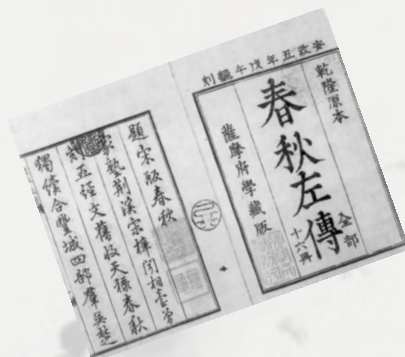 安政五年戊午飜刻
乾隆原本
春秋左傳
全部
十六冊
薩摩府學藏版
題宋版春秋
家塾荊溪宋相臺
五經文舊收天祿春秋
獨續合豐城四部羣